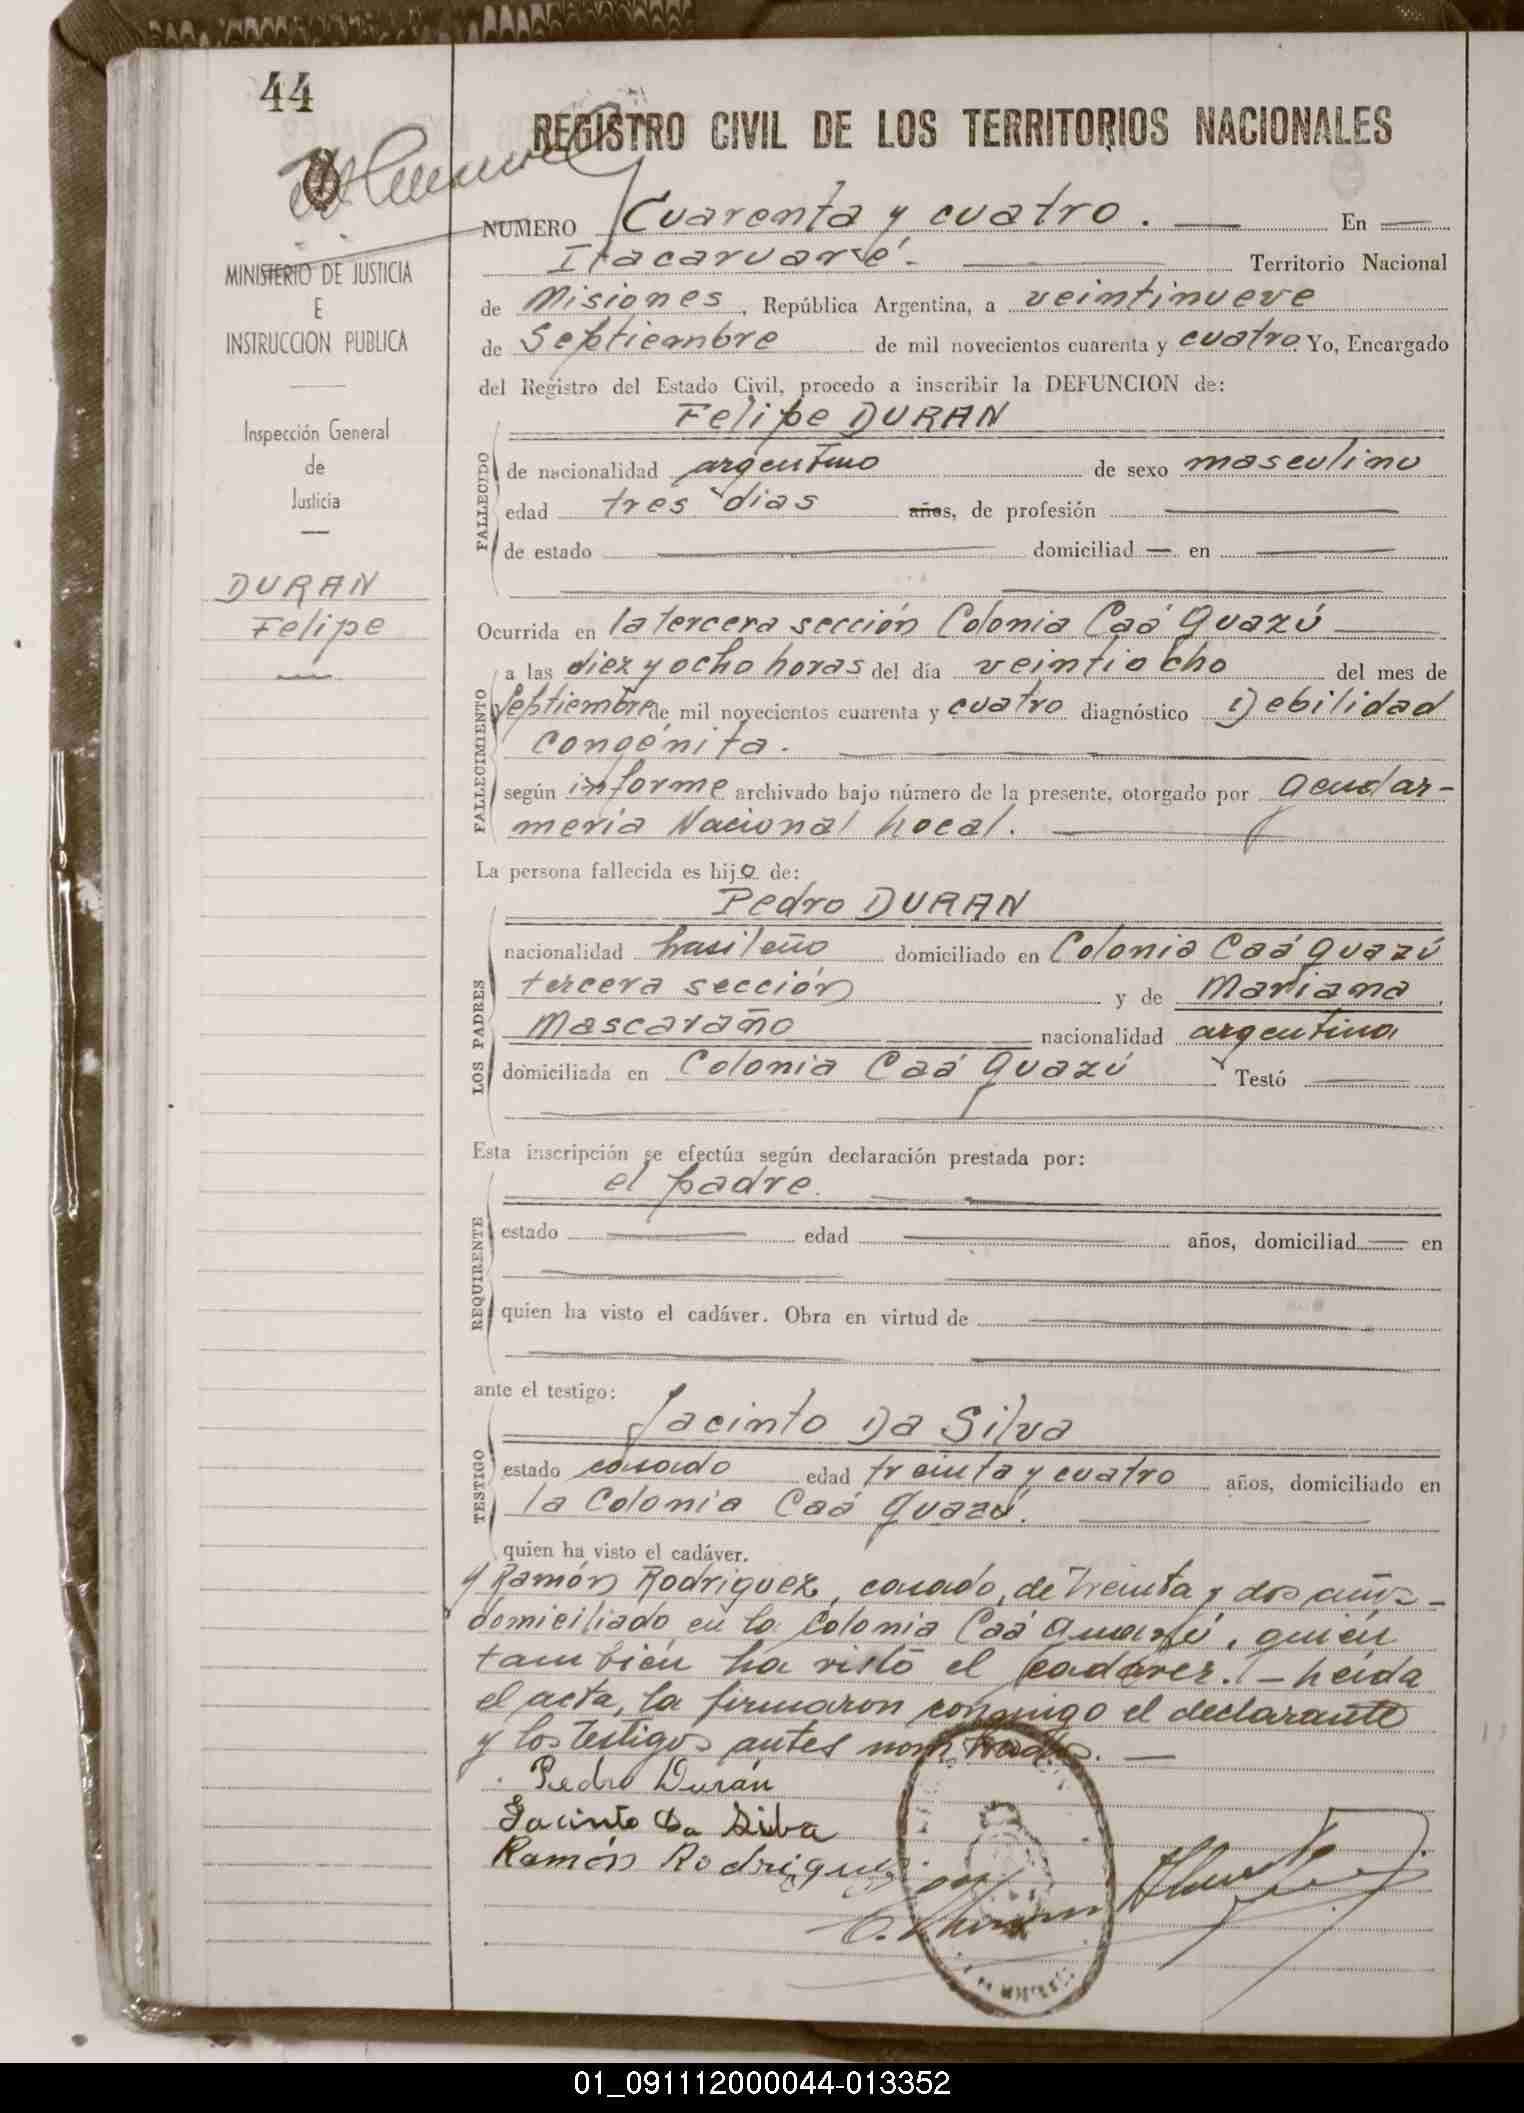 44
REGISTRO CIVIL DE LOS TERRITORIOS NACIONALES
MINISTERIO DE JUSTICIA
E
INSTRUCCION PUBLICA
Inspección General
de
Justicia
DURAN
Felipe
NUMERO Cuarenta y cuatro. — En —
Itacaruaré. — Territorio Nacional
de Misiones, República Argentina, a veintinueve
de Septiembre de mil novecientos cuarenta y cuatro. Yo, Encargado
del Registro del Estado Civil, procedo a inscribir la DEFUNCION de:
Felipe DURAN
FALLECIDO
de nacionalidad argentino de sexo masculino
edad tres dias años, de profesión —
de estado — domiciliad — en —
Ocurrida en la tercera sección Colonia Caá Guazú —
FALLECIMIENTO
a las diez y ocho horas del día veintiocho del mes de
Septiembre de mil novecientos cuarenta y cuatro diagnóstico Debilidad
congénita. —
según informe archivado bajo número de la presente, otorgado por Gendar-
meria Nacional local. —
La persona fallecida es hijo de:
Pedro DURAN
LOS PADRES
nacionalidad brasileño domiciliado en Colonia Caá Guazú
tercera sección y de Mariana
Mascaraño nacionalidad argentina
domiciliada en Colonia Caá Guazú Testó —
Esta inscripción se efectúa según declaración prestada por:
el padre. —
REQUIRENTE
estado — edad — años, domiciliad — en
quien ha visto el cadáver. Obra en virtud de —
ante el testigo:
Jacinto Da Silva
TESTIGO
estado casado edad treinta y cuatro años, domiciliado en
la Colonia Caá Guazú. —
quien ha visto el cadáver.
y Ramón Rodriguez, casado, de treinta y dos años –
domiciliado en la Colonia Caá Guazú, quién
también ha visto el cadáver. – Leida
el acta, la firmaron conmigo el declarante
y los testigos antes nombrados. —
Pedro Durán
Jacinto Da Silva
Ramón Rodriguez
01_091112000044-013352